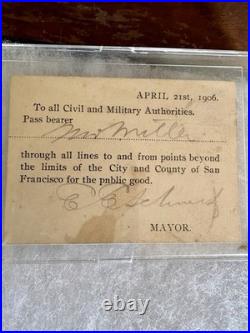 APRIL 21st, 1906.
To all Civil and Military Authorities.
Pass bearer
Miller
through all lines to and from points beyond
the limits of the City and County of San
Francisco for the public good.
E E Schmitz
MAYOR.